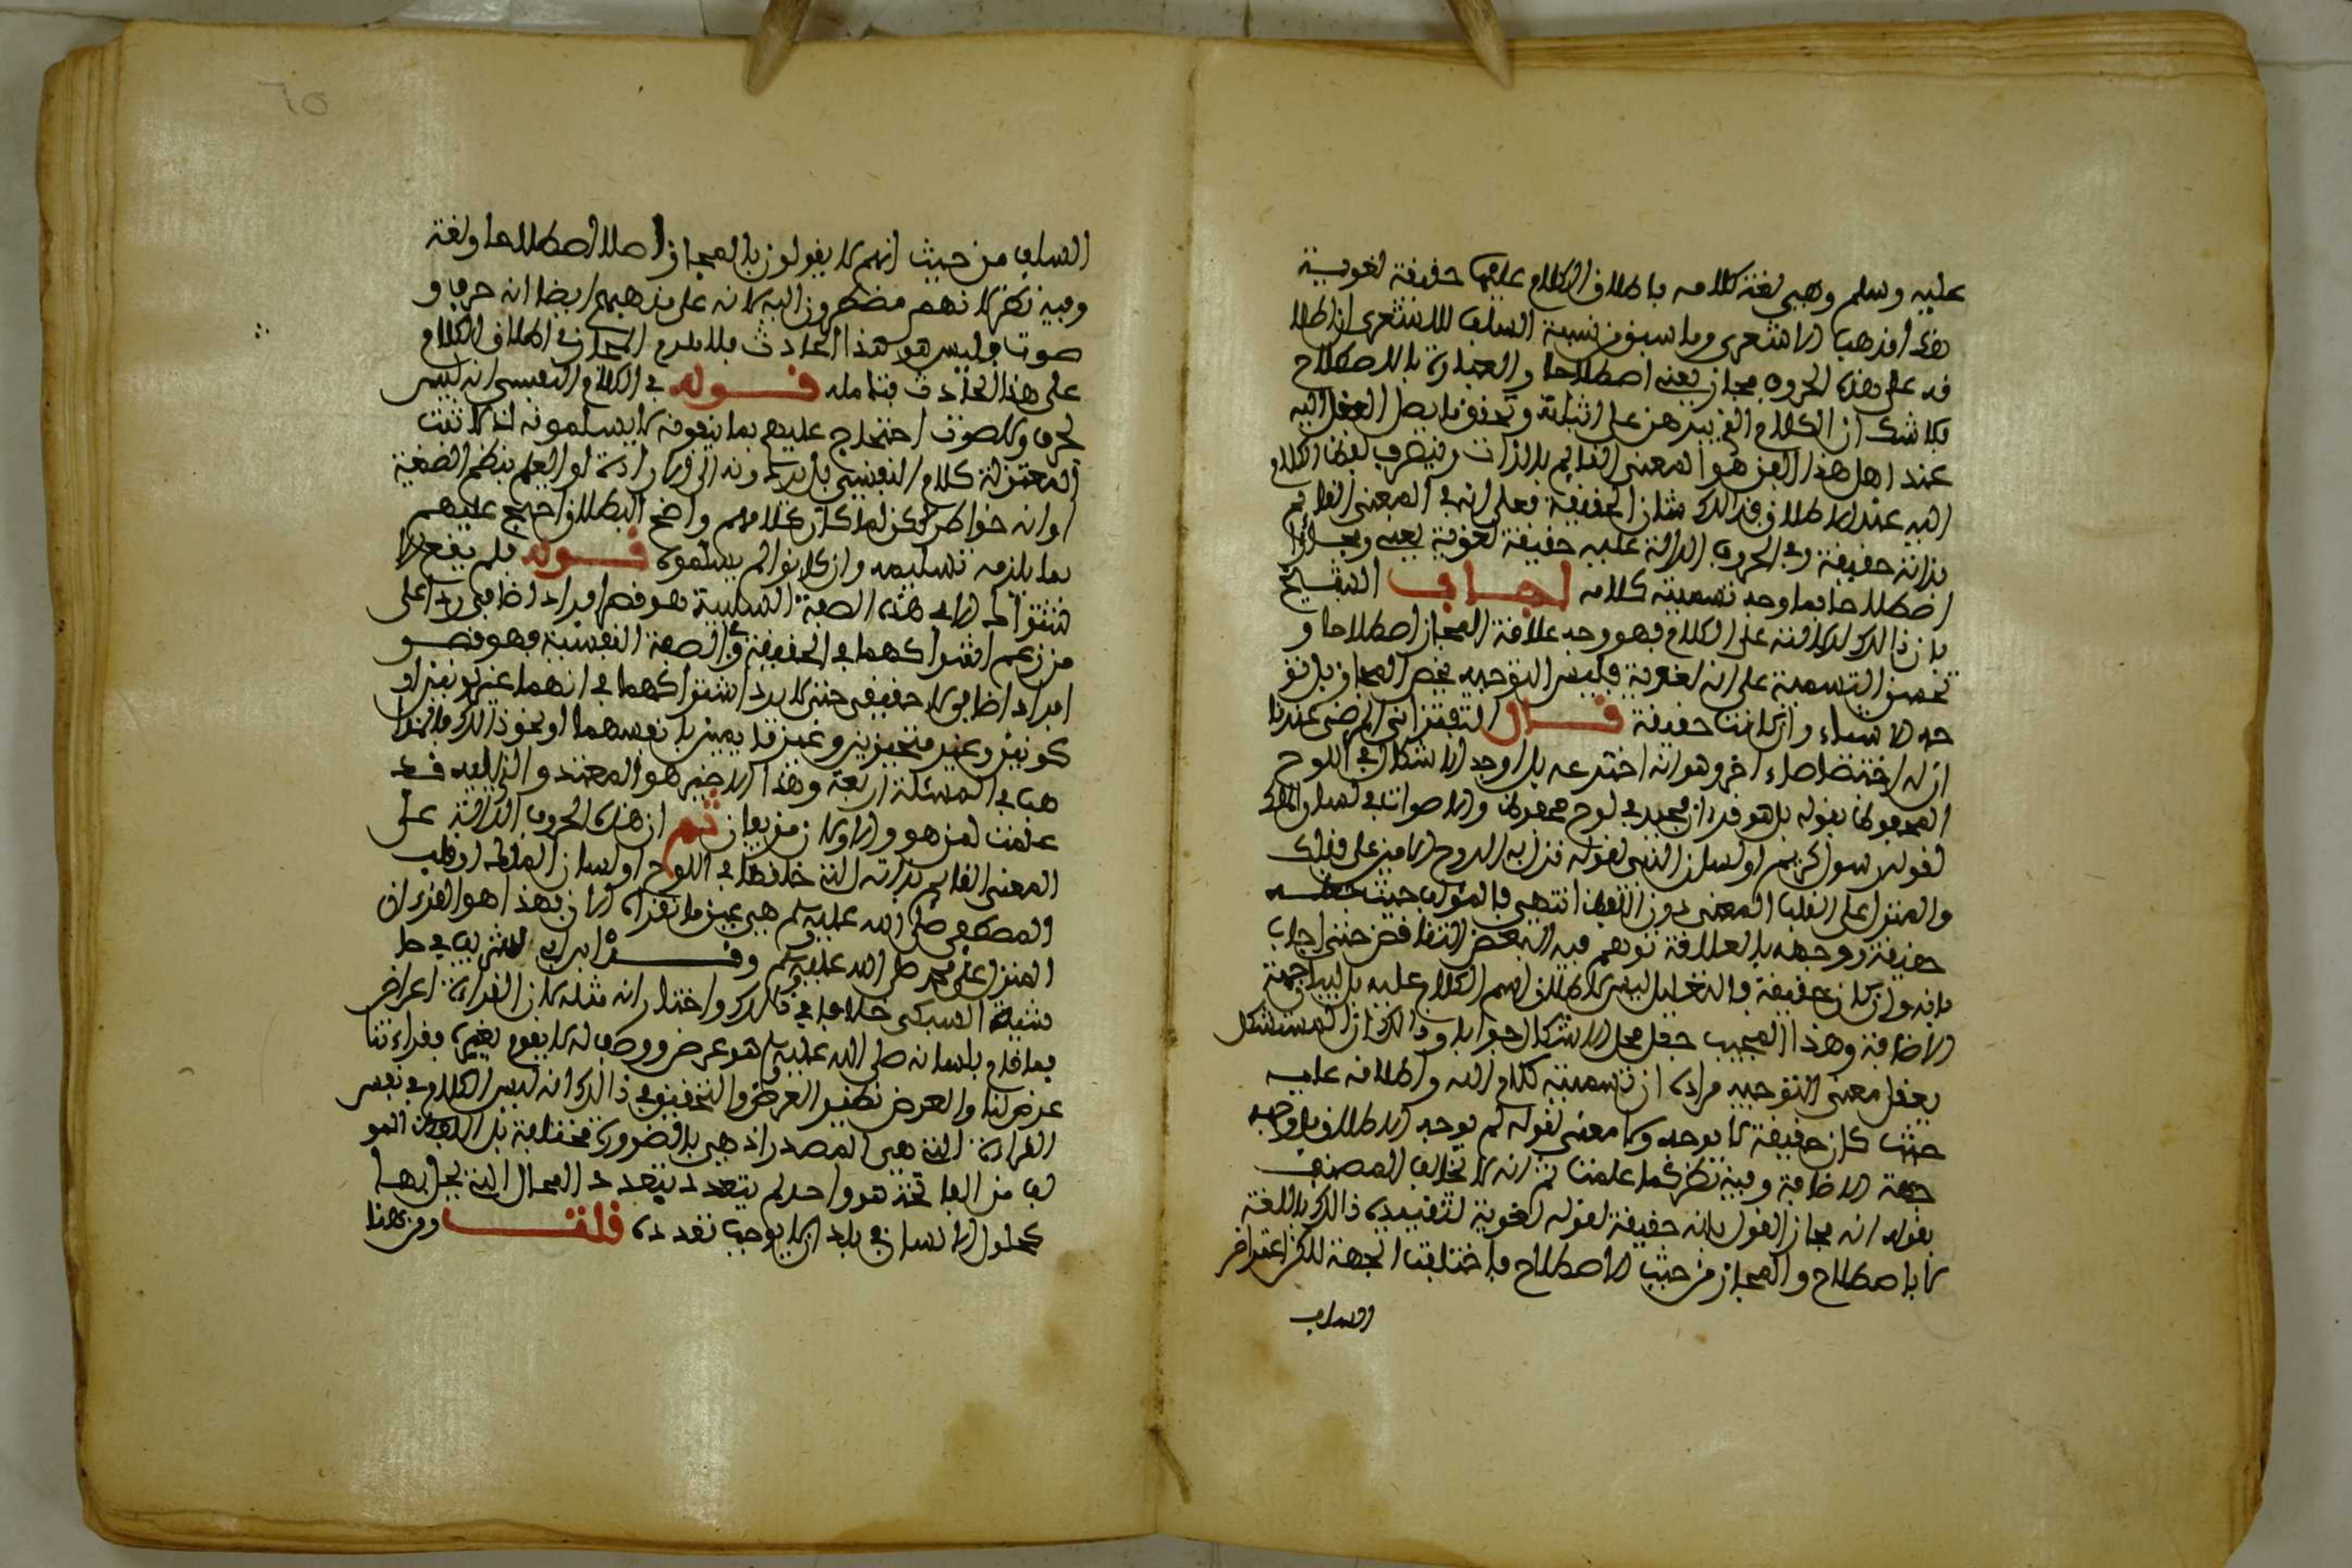 عليه وسلم وهي لغة كلامه باطلاق الكلام عليها حقيقة لغوية
هذا مذهب الاشعري وما سبق من نسبة السلف للاشعري ان اطلا
قه على هذه الحروف مجاز يعني اصطلاحا والعبارة بالاصطلاح
بلا شك ان الكلام الذي يبرهن على اثباته وتحقق ما يصل العقل اليه
عند اهل هذا الفن هو المعنى القايم بالذات فينصرف لفظ الكلام
اليه عند الاطلاق وذلك شان الحقيقة فعلى انه في المعنى القايم
بذاته حقيقة وفي الحروف الدالة عليه حقيقة لغوية يعني ومجازا
اصطلاحا فما وجه تسمية كلامه اجاب الشيخ
بان ذالك لدلالته على الكلام فهو وجه علاقة المجاز اصطلاحا و
تخصيص التسمية على انه لغوية فليس التوجيه يخص المجاز بل تو
جه الاسماء وان كانت حقيقة قال التفتزاني المرضي عندنا
ان له اختصاصاء اخر وهو انه اخترعه بان اوجد الاشكال في اللوح
المحفوظ لقوله بل هو قرءان مجيد في لوح محفوظ والاصوات في لسان الملك
لقوله رسول كريم او لسان النبي لقوله نزل به الروح الامين على قلبك
والمنزل على القلب المعنى دون اللفظ انتهى فالمؤلف حيث
حقيقة ووجهه بالعلاقة توهم فيه البعض التناقض حتى اجاب
بانه وان كان حقيقة فالتعليل ليس لاطلاق اسم الكلام عليه بل لبيان جهة
الاضافة وهذا المجيب جعل محل الاشكال جوابا وذالك ان المستشكل
يعقل معنى التوجيه مراده ان تسمية كلام الله واطلاقه عليه
حيث كان حقيقة لا يوجه ولا معنى لقوله لم يوجه الاطلاق بل وجه
جهة الاضافة وفيه نظر كما علمت ثم انه لا تخالف المصنف
بقوله انه مجاز القول بانه حقيقة لقوله لغوية لتقييده ذالك باللغة
لا باصطلاح والمجاز من حيث الاصطلاح فاختلفت الجهة لكن اعتراض
السلف
السلف من حيث انهم لا يقولون بالمجاز اصلا اصطلاحا ولغة
وفيه نظر لانهم مضطرون اليه لانه على مذهبهم ايضا انه حرف و
صوت وليس هو هذا الحادث فلا بد من المجاز في اطلاق الكلام
على هذا الحادث فتامله قوله في الكلام النفسي انه ليس
بحرف ولا صوت احتجاج عليهم بما ينفونه لا يسلمونه اذ لا تثبت
المعتزلة كلام النفسي بل يردونه الى الارادة او العلم بنظم الصيغة
او انه خواطر لكن لما كان كلامهم واضح البطلان احتج عليهم
بما يلزمه تسليمه وان كانوا لم يسلموه قوله فلم يقع الا
شتراك الا في هذه الصفة السلبية هو قصر افراد اضافي ردا على
من زعم اشتراكهما في الحقيقة والصفة النفسية فهو قصر
افراد اضافي لا حقيقي حتى لا يرد اشتراكهما في انهما غير لونين او
كونين وغير متحيزين وغير قايمين بانفسهما او نحو ذالك فالمذا
هب في المسئلة اربعة وهذا الاخير هو المعتمد والذي يليه قد
علمت لمن هو والاولان مزيفان ثم ان هذه الحروف الدالة على
المعنى القايم بذاته التي خلقها في اللوح او لسان الملك او قلب
المصطفى صلى الله عليه وسلم هي غير ما نقراه الان فهذا هو القرءان
المنزل على محمد صلى الله عليه وسلم وقرر ابن ابي الشريف في حا
شية السبكي خلافا في ذالك واختار انه مثله لان القراءة اعراض
فما قام بلسانه صلى الله عليه وسلم هو عرض ووصف له لا يقوم بغيره وقراءتنا
عرض لنا والعرض نظير العرض والتحقيق في ذالك انه ليس الكلام في نفس
القراءة التي هي المصدر اذ هي بالضرورة مختلفة بل اللفظ المو
لف من الفاتحة هو واحد لم يتعدد بتعدد المحال التي يحل بها
كحلول الانسان في بلدان لا يوجب تعدده قلت ومن هنا